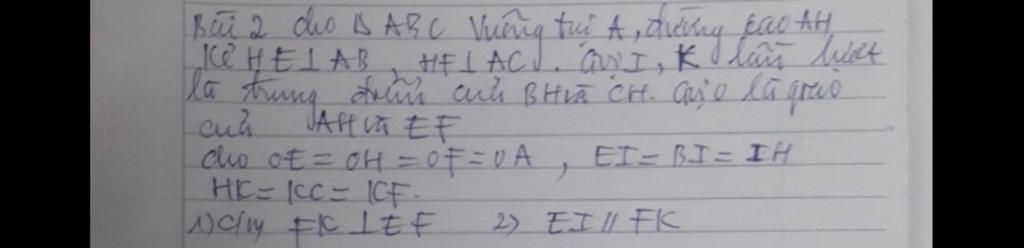 Bài 2 cho Δ ABC Vuông tại A, đường cao AH
Kẻ HE⊥AB, HF⊥AC. Gọi I, K lần lượt
là trung điểm của BH và CH. Gọi O là giao
của AH và EF
cho OE = OH = OF = OA, EI = BI = IH
HK = KC = KF.
1) C/m FK ⊥ EF 2) EI // FK